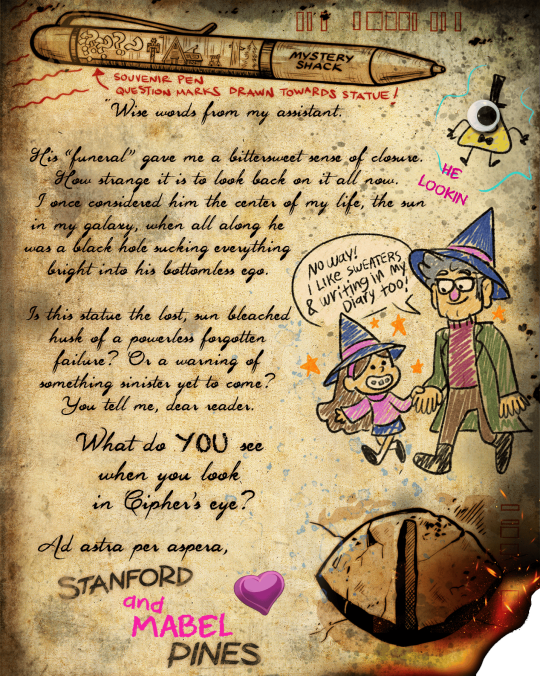 MYSTERY
SHACK
SOUVENIR PEN
QUESTION MARKS DRAWN TOWARDS STATUE!
"Wise words from my assistant.
His "funeral" gave me a bittersweet sense of closure.
How strange it is to look back on it all now.
I once considered him the center of my life, the sun
in my galaxy, when all along he
was a black hole sucking everything
bright into his bottomless ego.
HE
LOOKIN
NO WAY!
I LIKE SWEATERS
& WRITING IN MY
DIARY TOO!
Is this statue the lost, sun bleached
husk of a powerless forgotten
failure? Or a warning of
something sinister yet to come?
You tell me, dear reader.
What do YOU see
when you look
in Cipher's eye?
Ad astra per aspera,
STANFORD
and
MABEL
PINES